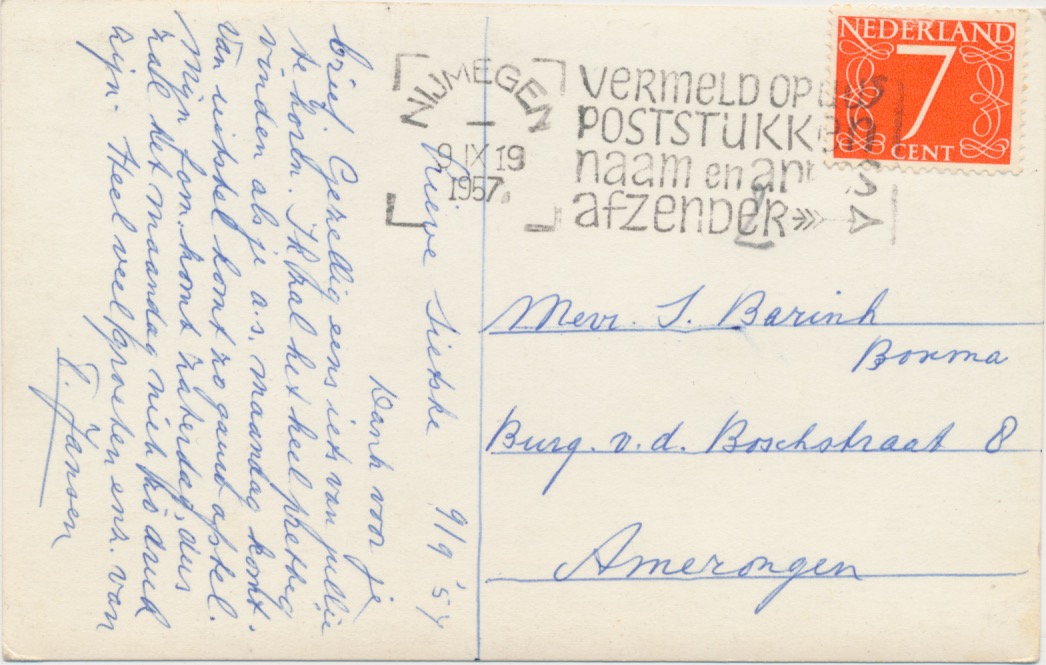 Lieve Sietske 9/9 '57
Dank voor je
brief. Gezellig eens iets van jullie
te horen. Ik zal het heel prettig
vinden als je a.s. maandag komt.
Van uitstel komt zo gauw afstel.
Mijn kom. komt zaterdag, dus
zal het maandag niet zo druk
zijn. Heel veel groeten enz. van
T. Jansen
NIJMEGEN
9 IX 19
1957
VERMELD OP
POSTSTUKKEN
naam en
afzender
NEDERLAND
7
CENT
Mevr. S. Barink
Bouma
Burg. v.d. Boschstraat 8
Amerongen